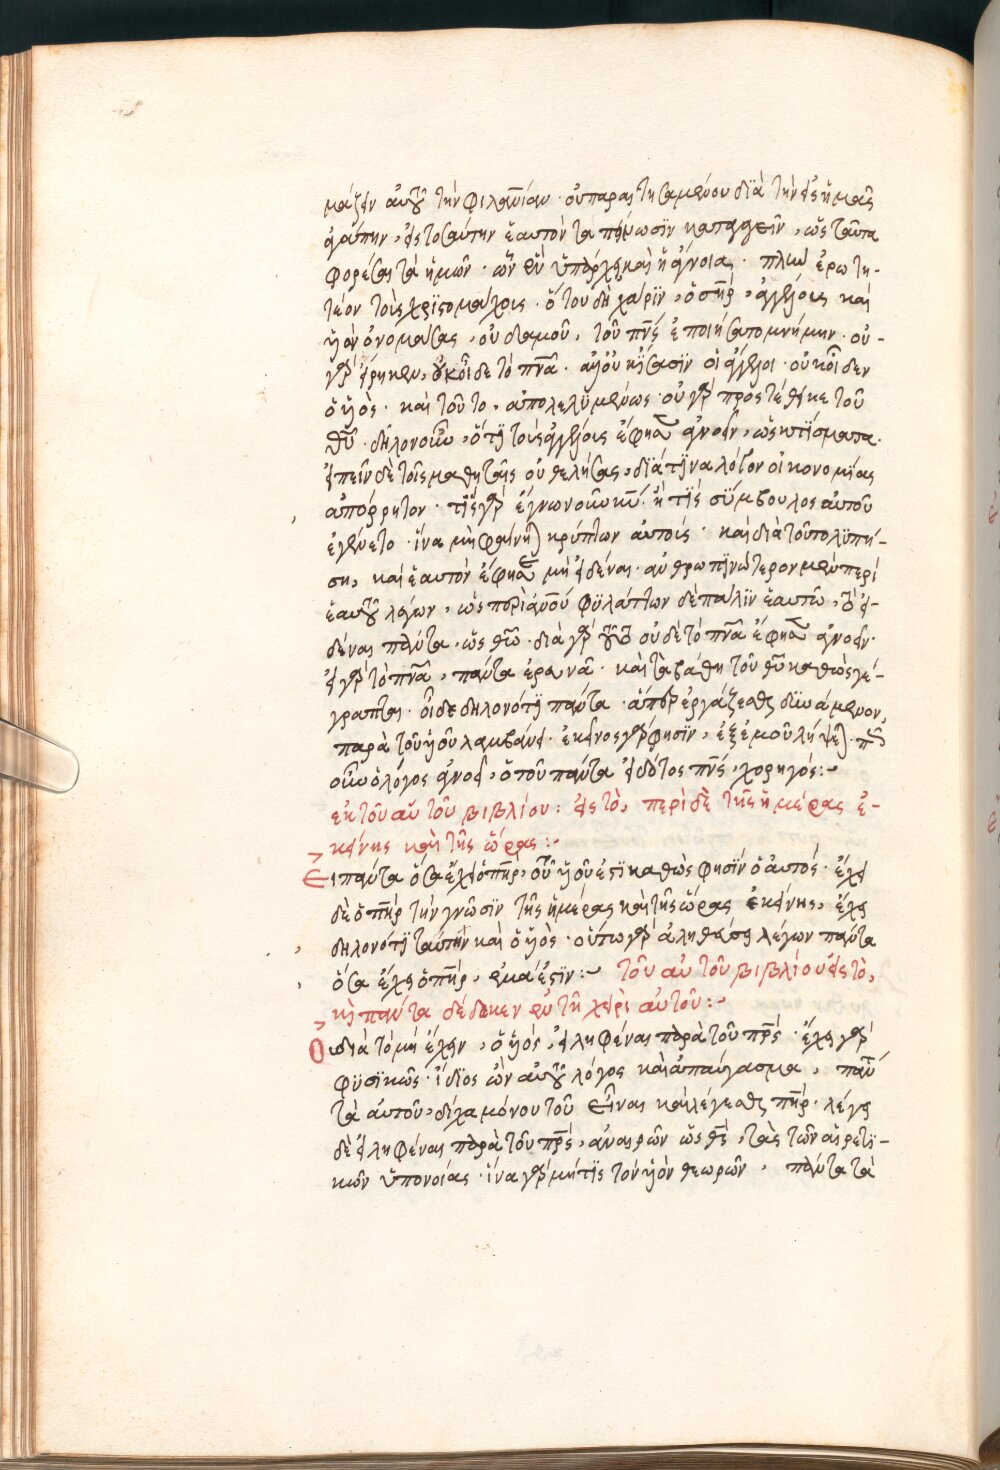 μάζειν αὐτοῦ τὴν φιλαν͞ιαν · οὐ παραιτησαμένου διὰ τὴν εἰς ἡμᾶς
ἀγάπην, εἰς τοσαύτην ἑαυτὸν ταπείνωσϊν καταγαγεῖν, ὡς ταῦτα
φορέσαι τὰ ἡμῶν · ὧν ἓν ὑπάρχει καὶ ἡ ἄγνοια · πλὴν ἐρωτη-
τέον τοῖς χρϊστομάχοις · ὅτου δὴ χάρϊν, ὁ σ͞ηρ, ἀγγέλους καὶ
ὑϊὸν ὀνομάσας, οὐδαμοῦ, τοῦ π͞νς ἐποιήσατο μνήμην · οὐ-
γὰρ εἴρηκεν, οὐκ οἶδε τὸ πν͞α · ἀλλ' οὐκ ἴσασϊν οἱ ἄγγελοι · οὐκ οἶδεν
ὁ ὑϊὸς · καὶ τοῦτο, ἀπολελϋμένως · οὐ γὰρ προστέθεικε τοῦ
θ͞υ · δηλονοῦν, ὅτϊ τοὺς ἀγγέλους ἔφησεν ἀγνοεῖν, ὡς κτίσματα ·
εἰπεῖν δὲ τοῖς μαθηταῖς οὐ θελήσας, διά τϊνα λόγον οἰκονομΐας
ἀπόρρητον · τΐς γὰρ ἔγνω νοῦν κ͞υ · ἢ τΐς σύμβουλος αὐτοῦ
ἐγένετο · ἵνα μὴ φαίνηται κρύπτων αὐτοῖς · καὶ διὰ τοῦτο λϋπή-
ση, καὶ ἑαυτὸν ἔφησε μὴ εἰδέναι · ἀνθρωπϊνώτερον μὲν περὶ
ἑαυτοῦ λέγων, ὡς περὶ ἀν͞ου φϋλάττων δὲ πάλϊν ἑαυτῷ, τὸ εἰ-
δέναι πάντα · ὡς θ͞ῷ · διὰ γὰρ τοῦτο οὐδὲ τὸ πν͞α ἔφησεν ἀγνοεῖν ·
εἰ γὰρ τὸ πν͞α, πάντα ἐραυνᾶ · καὶ τὰ βάθη τοῦ θ͞υ καθὼς γέ-
γραπται · οἶδε δηλονότϊ πάντα · ἅπερ ἐργάζεσθαι δϋνάμενον,
παρὰ τοῦ ὑϊοῦ λαμβάνει · ἐκεῖνος γάρ φησϊν, ἐξ ἐμοῦ λήψεται · πῶς
οὖν ὁ λόγος ἀγνοεῖ, ὁ τοῦ πάντα εἰδότος π͞νς, χορηγός :-
ἐκ τοῦ αὐτοῦ βιβλίου : εἰς τὸ, περὶ δὲ τῆς ἡμέρας ἐ-
κείνης καὶ τῆς ὥρας :-
Εἰ πάντα ὅσα ἔχει ὁ π͞ηρ, τοῦ ὑϊοῦ ἐστϊ καθὼς φησϊν ὁ αὐτός · ἔχει
δὲ ὁ π͞ηρ τὴν γνῶσϊν τῆς ἡμέρας καὶ τῆς ὥρας ἐκείνης, ἔχει
δηλονότϊ ταύτην καὶ ὁ ὑϊὸς · οὕτω γὰρ ἀληθεύσει λέγων πάντα
ὅσα ἔχει ὁ π͞ηρ, ἐμά ἐστϊν :- τοῦ αὐτοῦ βιβλίου εἰς τὸ,
κ̀ πάντα δέδωκεν ἐν τῇ χειρὶ αὐτοῦ :-
Οὐ διὰ τὸ μὴ ἔχειν, ὁ ὑϊός, εἰληφέναι παρὰ τοῦ π͞ρς · ἔχει γὰρ
φϋσϊκῶς · ἴδιος ὢν αὐτοῦ λόγος καὶ ἀπαύγασμα, πάντα
τὰ αὐτοῦ, δίχα μόνου τοῦ εἶναι καὶ λέγεσθαι π͞ηρ · λέγει
δὲ εἰληφέναι παρὰ τοῦ π͞ρς, ἀναιρῶν ὡς θ͞ς, τὰς τῶν αἱρετϊ-
κῶν ὑπονοίας · ἵνα γὰρ μήτϊς τὸν ὑϊὸν θεωρῶν, πάντα τὰ